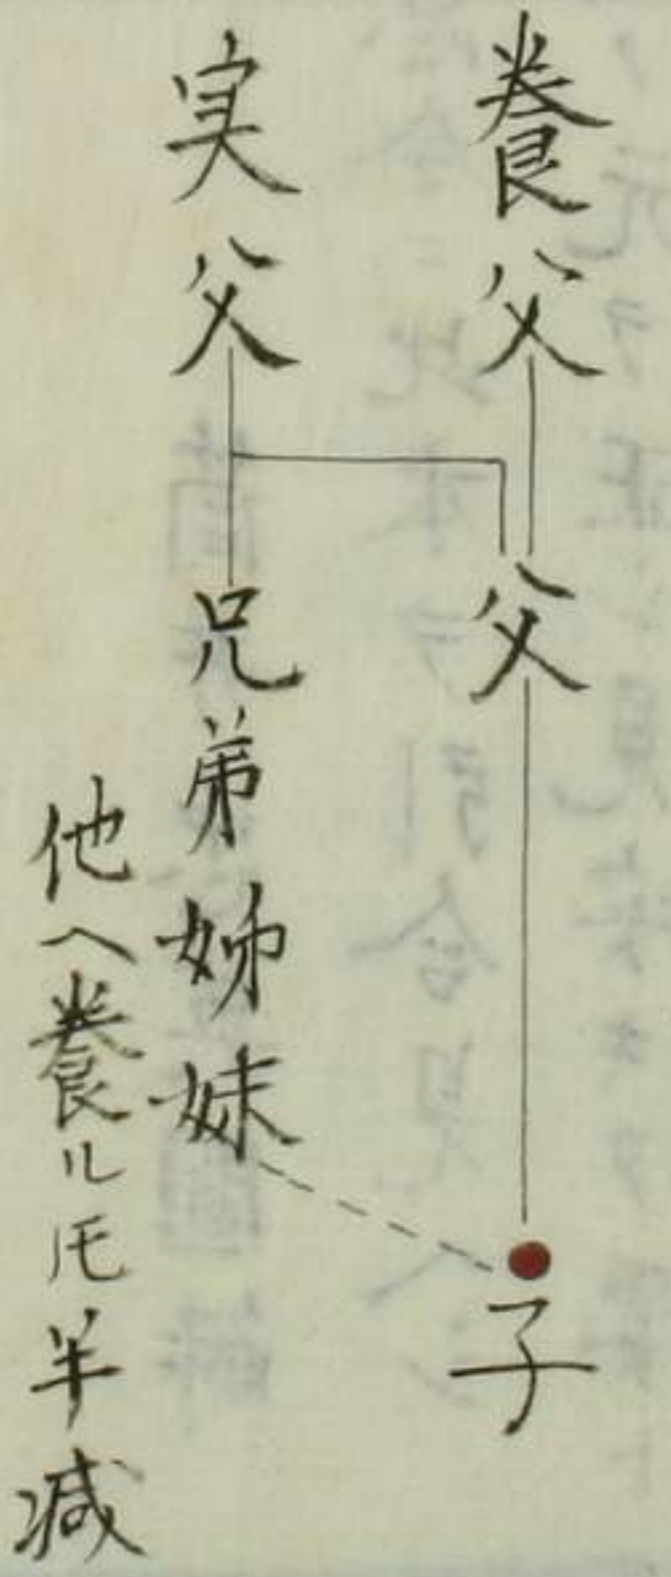 養父
父
子
実父
兄弟姉妹
他ヘ養ル𪜈半減